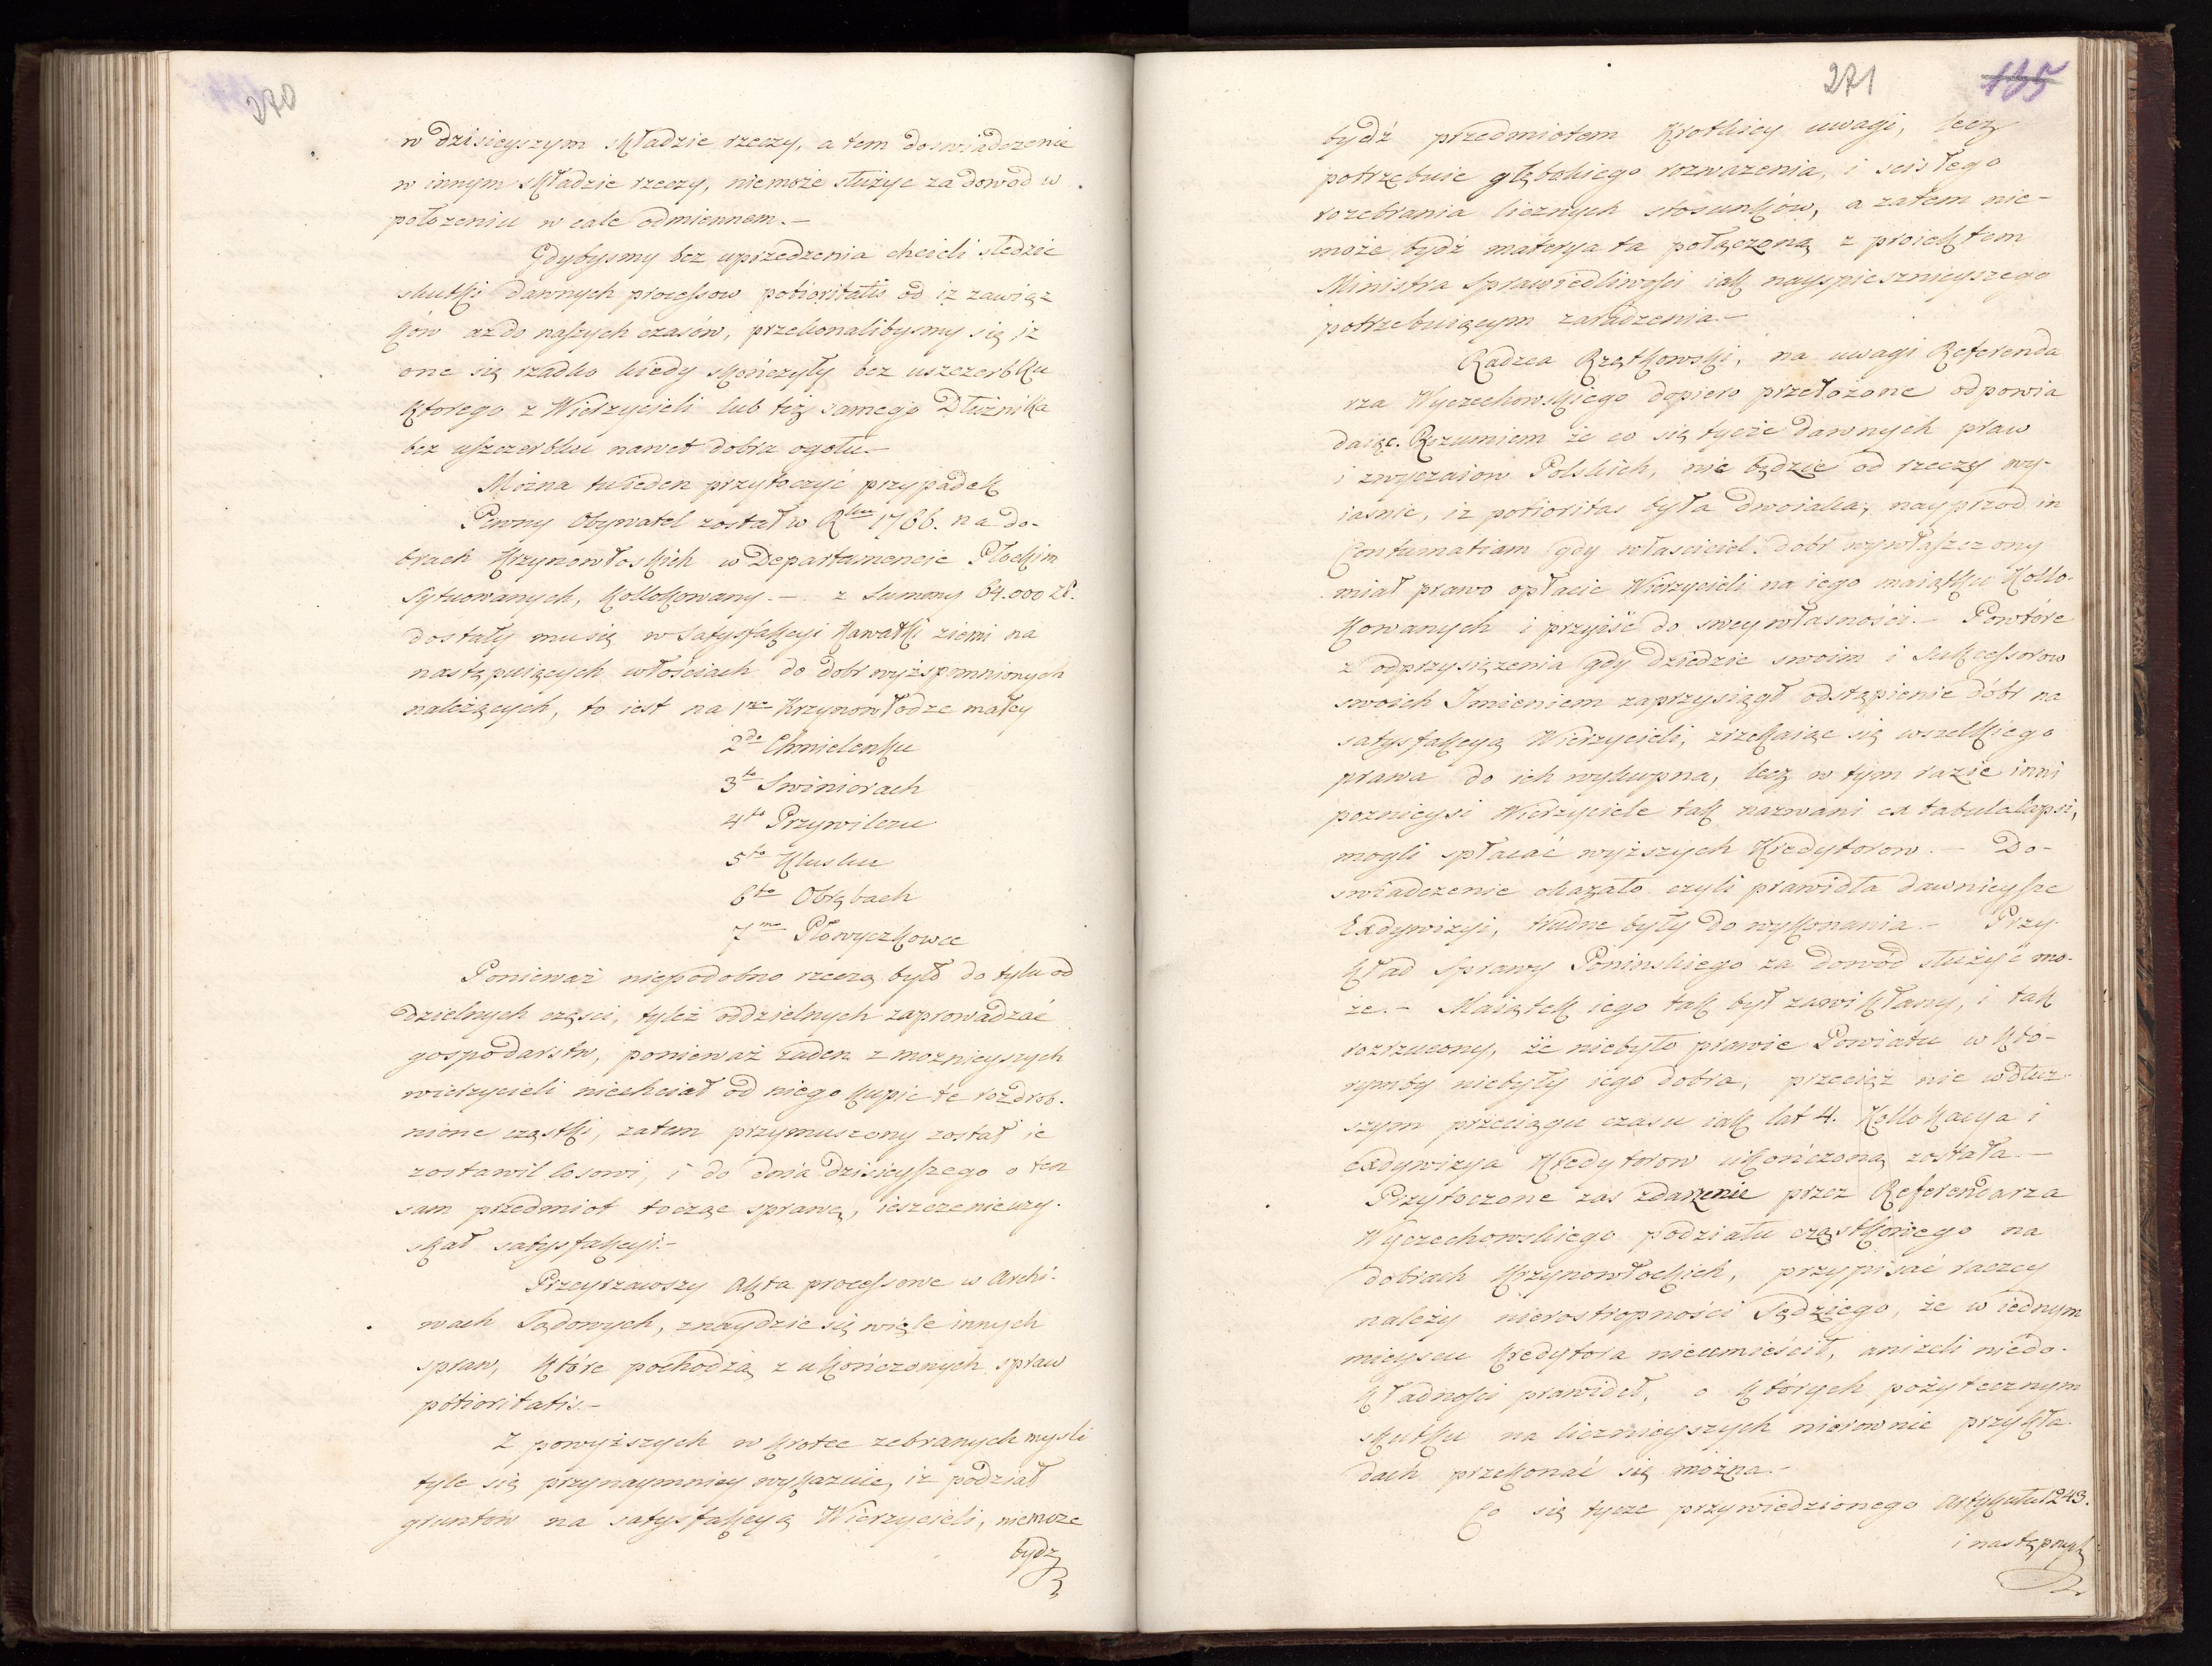 270
w dzisieyszym składzie rzeczy, a tem doswiadczenie
w innym składzie rzeczy, niemoże służyc za dowod w
położeniu w cale odmiennem.—
Gdybysmy bez uprzedzenia chcieli sledzic
skutki dawnych processow potioritatis od iż zawiąz
ków aż do naszych czasów, przekonalibysmy się, iż
one się rzadko kiedy skończyły bez uszczerbku
ktorego z Wierzycieli lub też samego Dłużnika
bez uszczerbku nawet dobra ogołu.—
Można tu ieden przytoczyć przypadek
Pewny Obywatel został w Rku 1786. na do-
brach Krzynowłoskich w Departamencie Płockim
sytuowanych, kollokowany.— z Summy 64.000 zł.
dostały mu się w Satysfakcyi kawałki ziemi na
następuiących włościach do dobr wyżspomnionych
należących, to iest na 1mo Krzynowłodze małey
2do Chmielenku
3tio Swiniorach
4to Przywilczu
5to Klusku
6to Obrębach
7mo Pławyczkowce
Ponieważ niepodobno rzeczą było do tylu od
dzielnych części, tyleż oddzielnych zaprowadzać
gospodarstw, ponieważ żaden z możnieyszych
wierzycieli niechciał od niego kupić te rozdrob-
nione cząstki, zatem przymuszony został ie
zostawić losowi, i do dnia dzisieyszego o ten
sam przedmiot tocząc sprawę, ieszcze nieuzy-
skał satysfakcyi.—
Przeyrzawszy Akta processowe w Archi-
wach Sądowych, znaydzie się wiele innych
spraw, które pochodzą z ukończonych spraw
potioritatis.—
Z powyższych w krotce zebranych mysli
tyle się przynaymniey wykazuie, iż podział
gruntów na satysfakcyą Wierzycieli, niemoże
bydz
271 135
bydź przedmiotem krotkiey uwagi, lecz
potrzebuie głębokiego rozważenia, i scisłego
rozebrania licznych stosunków, a zatem nie-
może bydź materya ta połączoną z proiektem
Ministra Sprawiedliwosci iak nayspiesznieyszego
potrzebuiącym zaradzenia.—
Radzca Rzątkowski, na uwagi Referenda
rza Wyczechowskiego dopiero przełożone odpowia
daiąc. Rozumiem że co się tycze dawnych praw
i zwyczaiow Polskich, nie będzie od rzeczy wy-
iasnic, iż potioritas była dwoiaka; nayprzod in
Contumatiam gdy własciciel dobr wywłaszczony
miał prawo opłacic Wierzycieli na iego maiątku kollo-
kowanych i przyiść do swey własności.— Powtóre
z odprzysiężenia gdy dziedzic swoim i Sukcessorow
swoich Imieniem zaprzysiągł odstąpienie dóbr na
satysfakcyą Wierzycieli, zrzekaiąc się wszelkiego
prawa do ich wykupna, lecz w tym razie inni
poznieysi Wierzyciele tak nazwani ex tabula lapsi,
mogli spłacać wyższych Kredytorow.— Do-
swiadczenie okazało czyli prawidła dawnieysze
Exdywizyi, trudne były do wykonania.— Przy-
kład Sprawy Ponińskiego za dowód służyć mo-
że.— Maiątek iego tak był zawikłany, i tak
rozrzucony, że niebyło prawie Powiatu w któ-
rymby niebyły iego dobra, przecięż nie w dłuż-
szym przeciągu czasu iak lat 4. Kollokacya i
exdywizya Kredytorow ukończoną została.—
Przytoczone zas zdarzenie przez Referendarza
Wyczechowskiego podziału cząstkowego na
dobrach Krzynowłockich, przypisać raczey
należy nieroztropności Sędziego, że w iednym
mieyscu Kredytora nieumieścił, aniżeli niedo-
kładności prawideł, o których pożytecznym
skutku na licznieyszych nierownie przykła-
dach przekonać się można.—
Co się tycze przywiedzionego Artykułu 1243.
i następnych